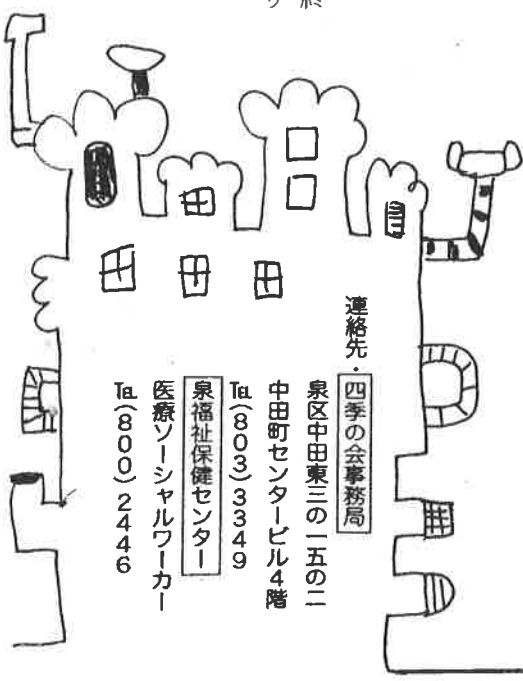 連絡先・四季の会事務局
泉区中田東三の一五の二
中田町センタービル4階
℡(803)3349
泉福祉保健センター
医療ソーシャルワーカー
℡(800)2446